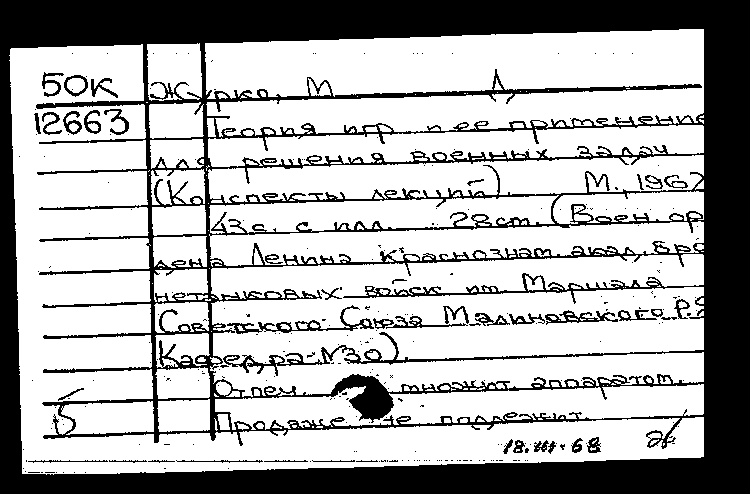 50К Журко, М Д
12663 Теория игр и ее применение
для решения военных задач
(Конспекты лекций). М., 1967
43с. с илл. 28см. (Воен. ор
дена Ленина краснознам. акад. бро
нетанковых войск им Маршала
Советского Союза Малиновского Р.Я
Кафедра N30).
Отпеч. множит. аппаратом.
Продаже не подлежит.
Б
18.III.68